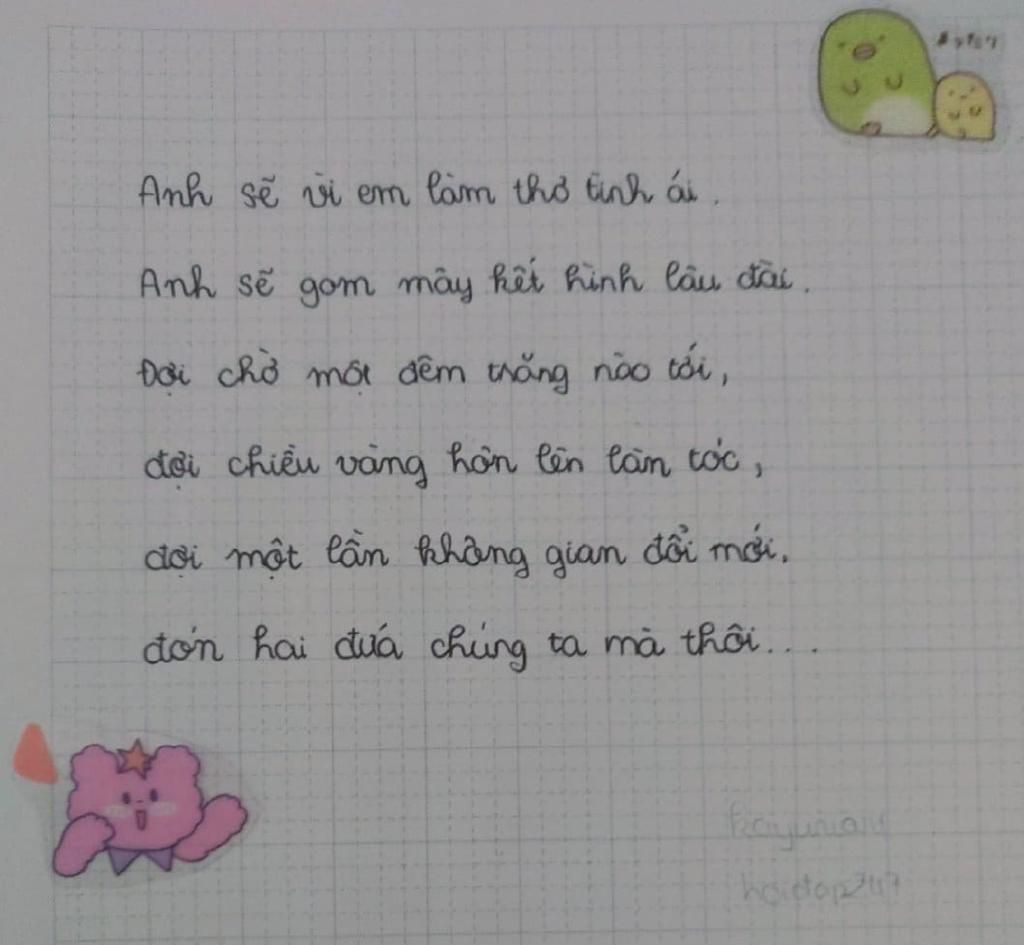 Anh sẽ vì em làm thơ tình ái.
Anh sẽ gom mây kết hình lâu đài.
Đợi chờ một đêm trăng nào tới,
đợi chiều vàng hôn lên làn tóc,
đợi một lần không gian đổi mới.
đón hai đứa chúng ta mà thôi...
hoidap247